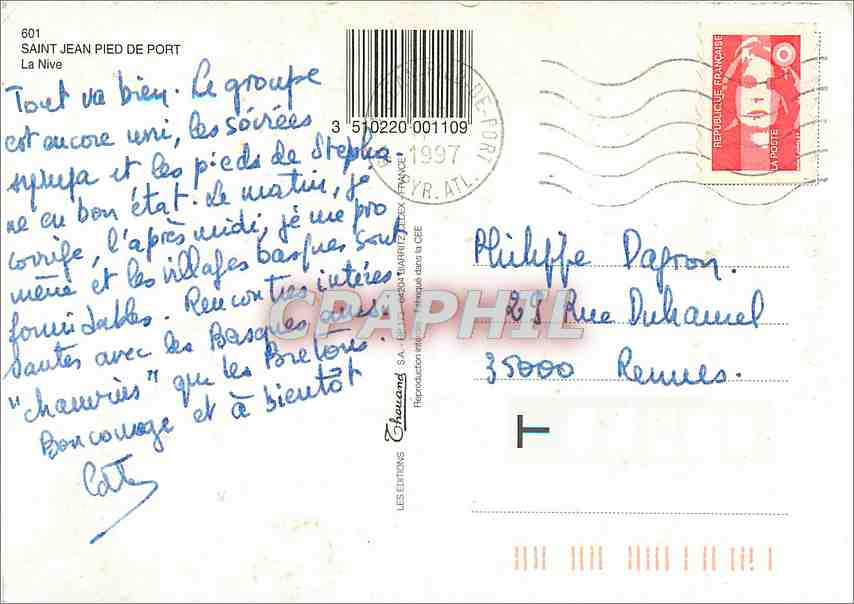 601
SAINT JEAN PIED DE PORT
La Nive
Tout va bien. Le groupe
est encore uni, les soirées
sympa et les pieds de Stépha-
ne en bon état. Le matin, je
corrige, l'après midi, je me pro
mène et les villages basques sont
formidables. Rencontres intéres-
santes avec les Basques aussi
"chauvins" que les Bretons.
Bon courage et à bientôt
3 510220 001109
1997
PYR. ATL.
REPUBLIQUE FRANÇAISE
LA POSTE
LES EDITIONS Thouand S.A. - 64204 BIARRITZ CEDEX - FRANCE
Reproduction Fabriqué dans la CEE
CPAPHIL
Philippe Dagron.
29 Rue Duhamel
35000 Rennes.
T